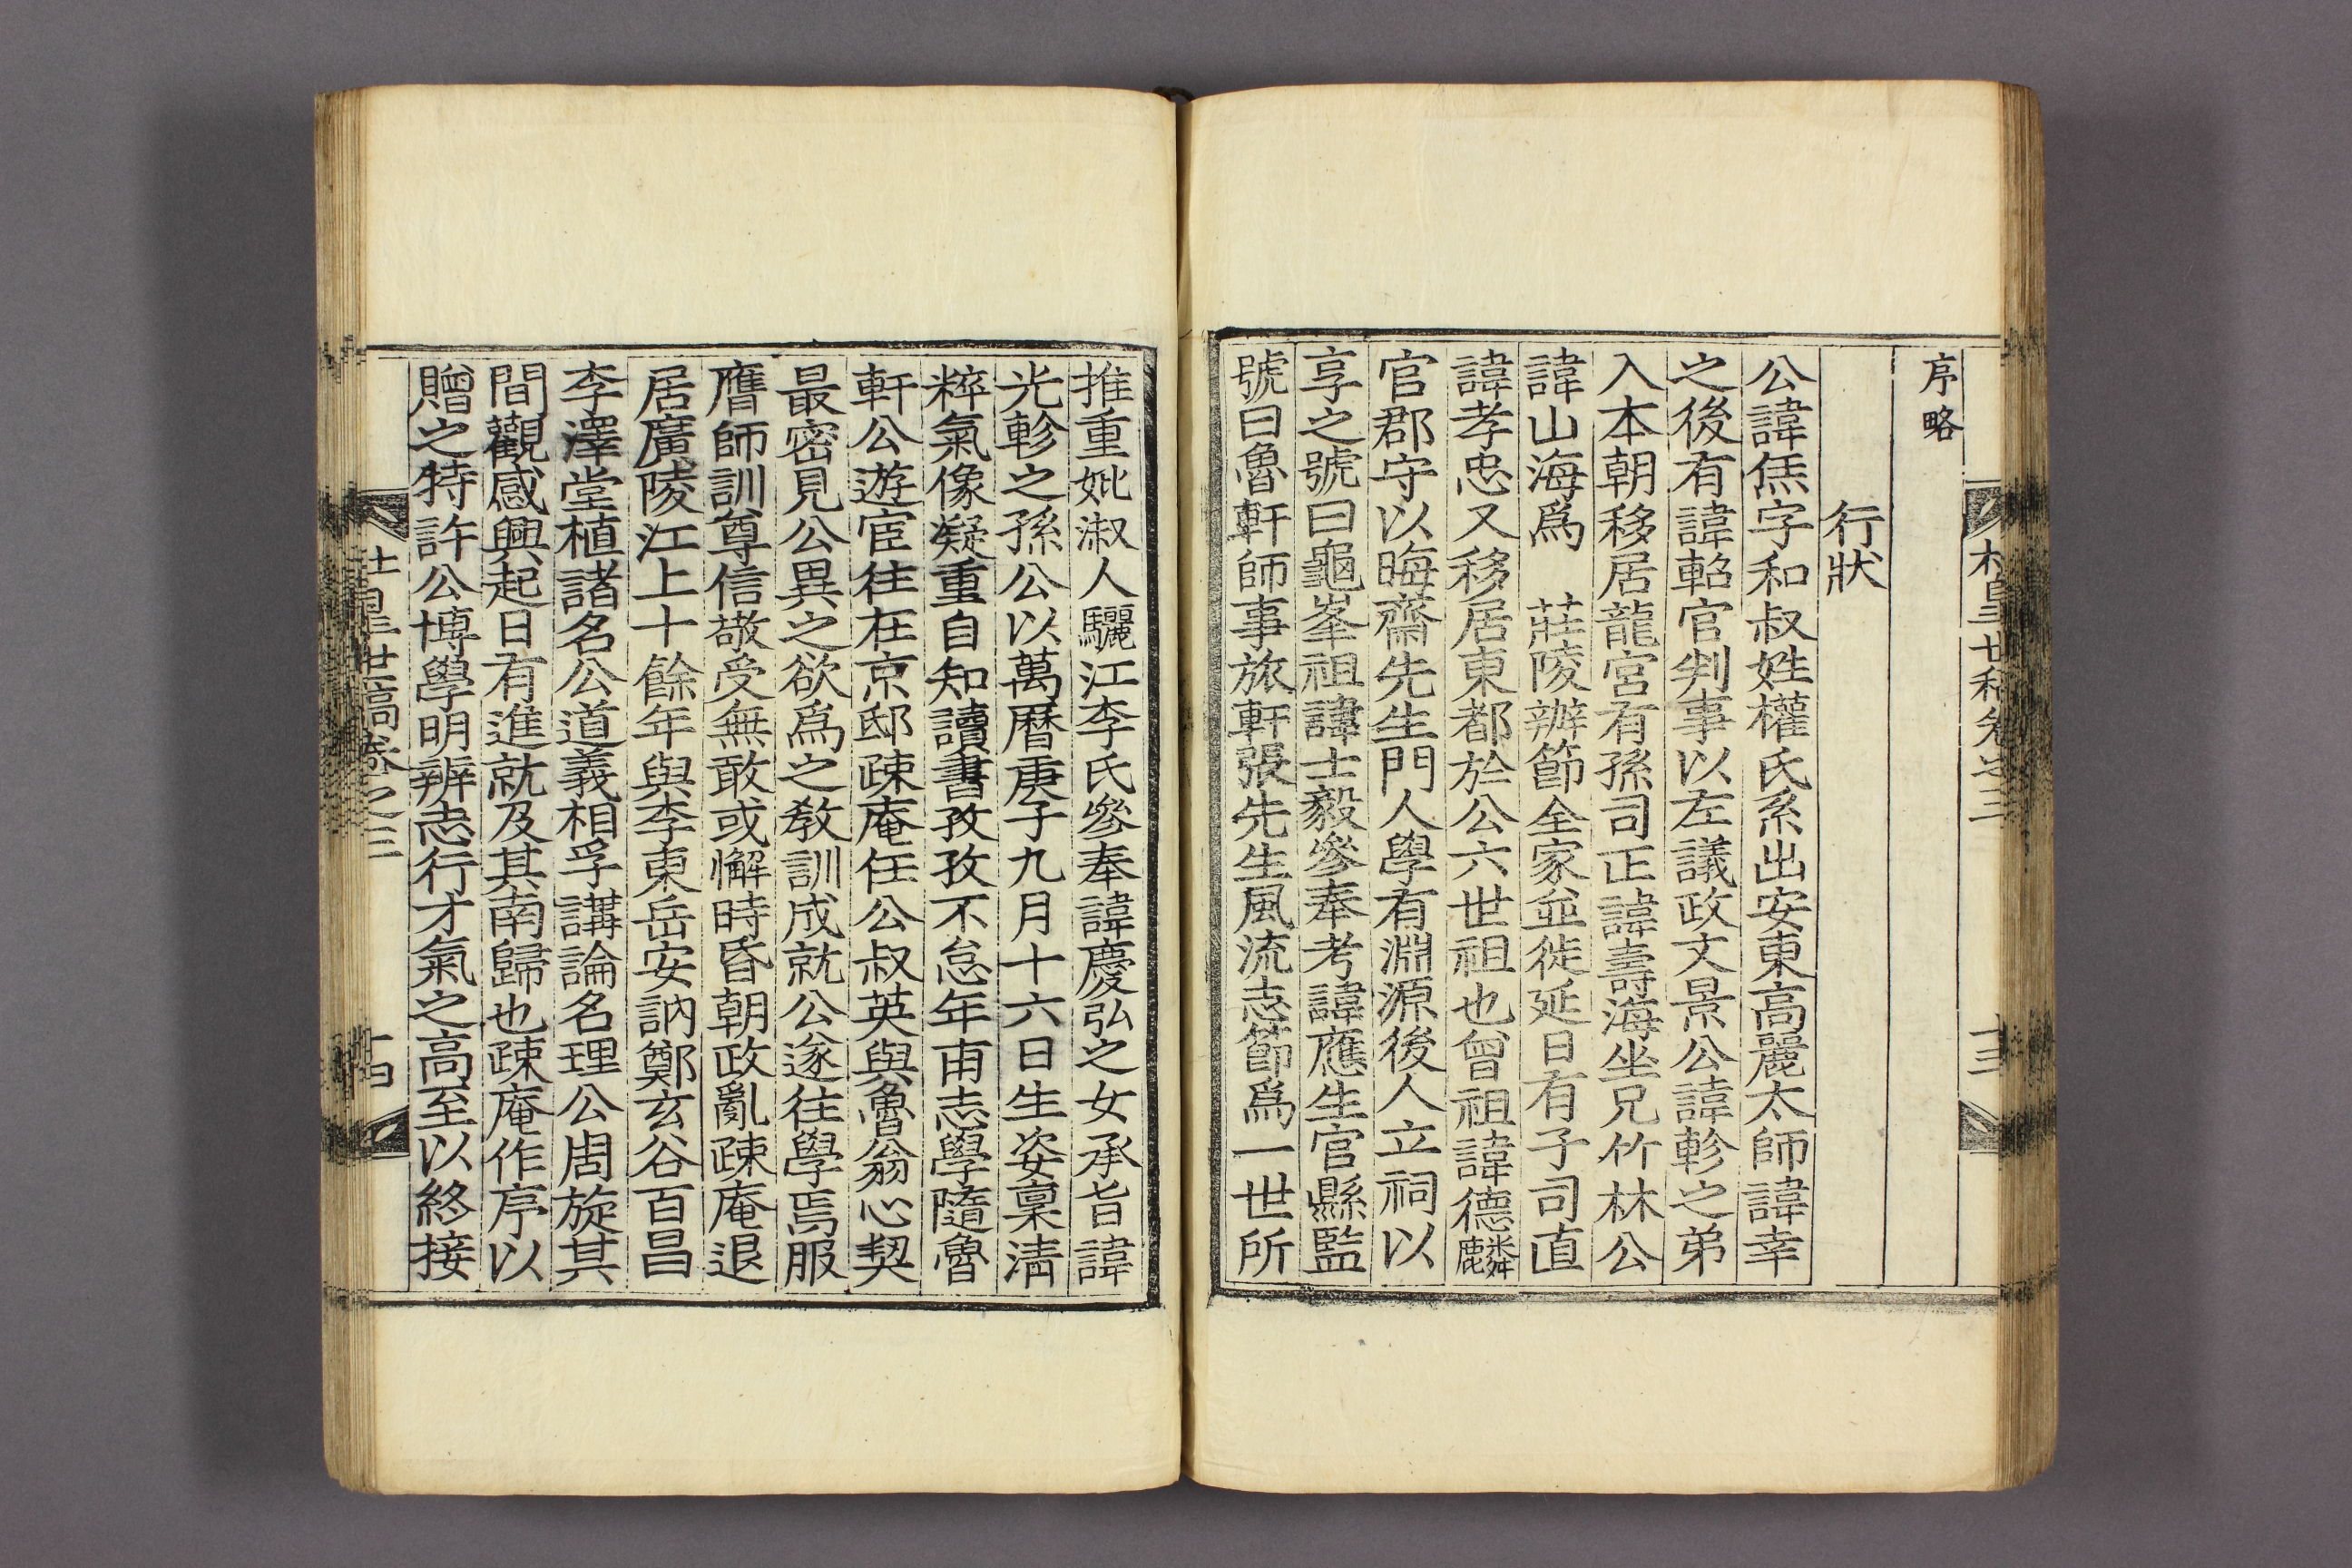 序略
行狀
公諱㷌字和叔姓權氏系出安東高麗太師諱幸
之後有諱軺官判事以左議政文景公諱軫之弟
入本朝移居龍宮有孫司正諱壽海坐兄竹林公
諱山海爲 莊陵辦節全家並徙延日有子司直
諱孝忠又移居東都於公六世祖也曾祖諱德麟
官郡守以晦齋先生門人學有淵源後人立祠以
享之號曰龜峯祖諱士毅參奉考諱應生官縣監
號曰魯軒師事旅軒張先生風流志節爲一世所
推重妣淑人驪江李氏參奉諱慶弘之女承旨諱
光軫之孫公以萬曆庚子九月十六日生姿稟淸
粹氣像凝重自知讀書孜孜不怠年甫志學隨魯
軒公遊宦往在京邸疎庵任公叔英與魯翁心契
最密見公異之欲爲之敎訓成就公遂往學焉服
膺師訓尊信敬受無敢或懈時昏朝政亂疎庵退
居廣陵江上十餘年與李東岳安訥鄭玄谷百昌
李澤堂植諸名公道義相孚講論名理公周旋其
間觀感興起日有進就及其南歸也疎庵作序以
贈之特許公博學明辨志行才氣之高至以終接